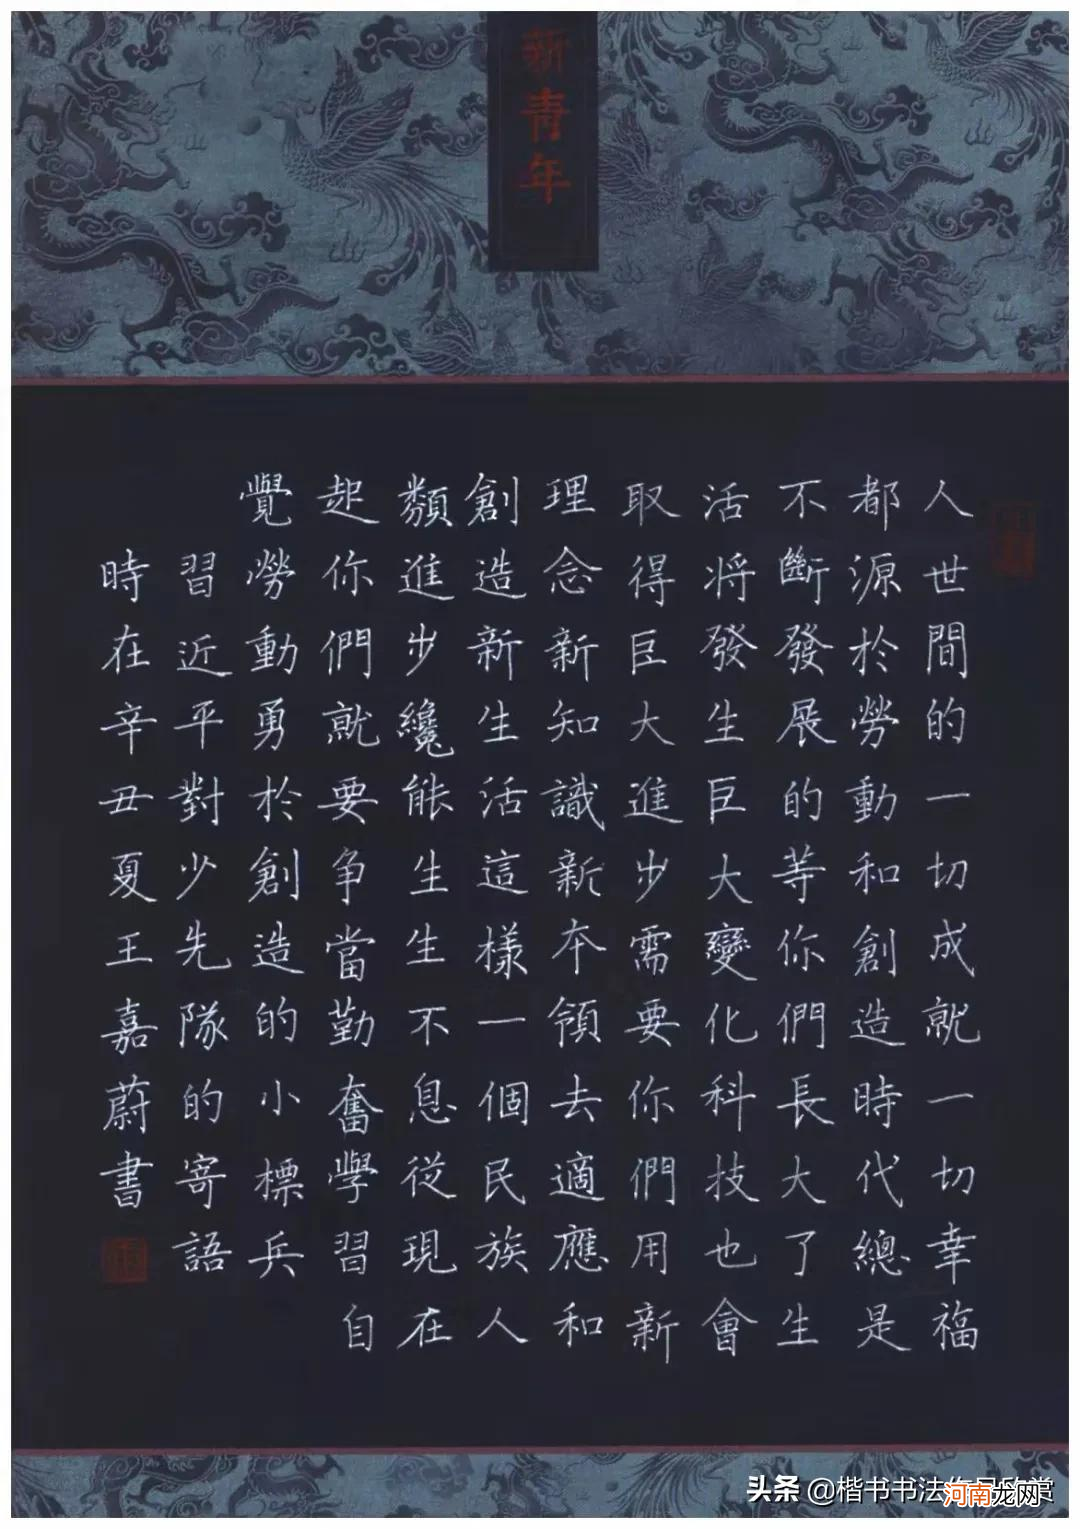 新青年
人世間的一切成就一切幸福
都源於勞動和創造時代總是
不斷發展的等你們長大了生
活将發生巨大變化科技也會
取得巨大進步需要你們用新
理念新知識新本領去適應和
創造新生活這樣一個民族人
類進步纔能生生不息從現在
起你們就要争當勤奮學習自
覺勞動勇於創造的小標兵
習近平對少先隊的寄語
時在辛丑夏王嘉蔚書
头条 @楷书书法作品欣赏
河南龙网